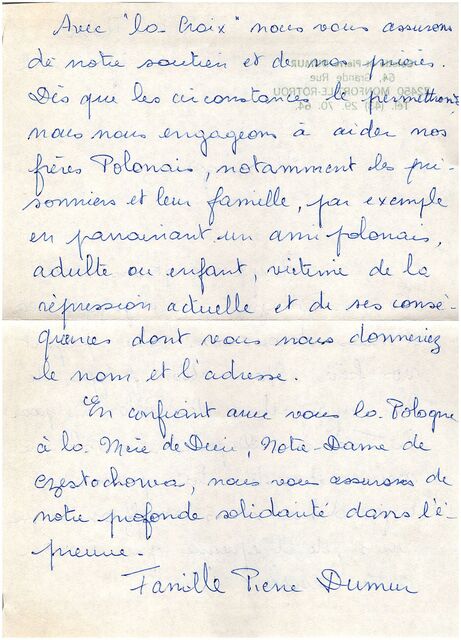 Avec "la Croix" nous vous assurons
de notre soutien et de nos prières.
Dès que les circonstances le permettront,
nous nous engageons à aider nos
frères Polonais, notamment les pri-
sonniers et leur famille, par exemple
en parrainant un ami polonais,
adulte ou enfant, victime de la
répression actuelle et de ses consé-
quences dont vous nous donneriez
le nom et l'adresse.
En confiant avec vous la Pologne
à la Mère de Dieu, Notre-Dame de
Częstochowa, nous vous assurons de
notre profonde solidarité dans l'é-
preuve.
Famille Pierre Dumur
64, Grande Rue
72450 MONTFORT-LE-ROTROU
Tél. (43) 29. 70. 64